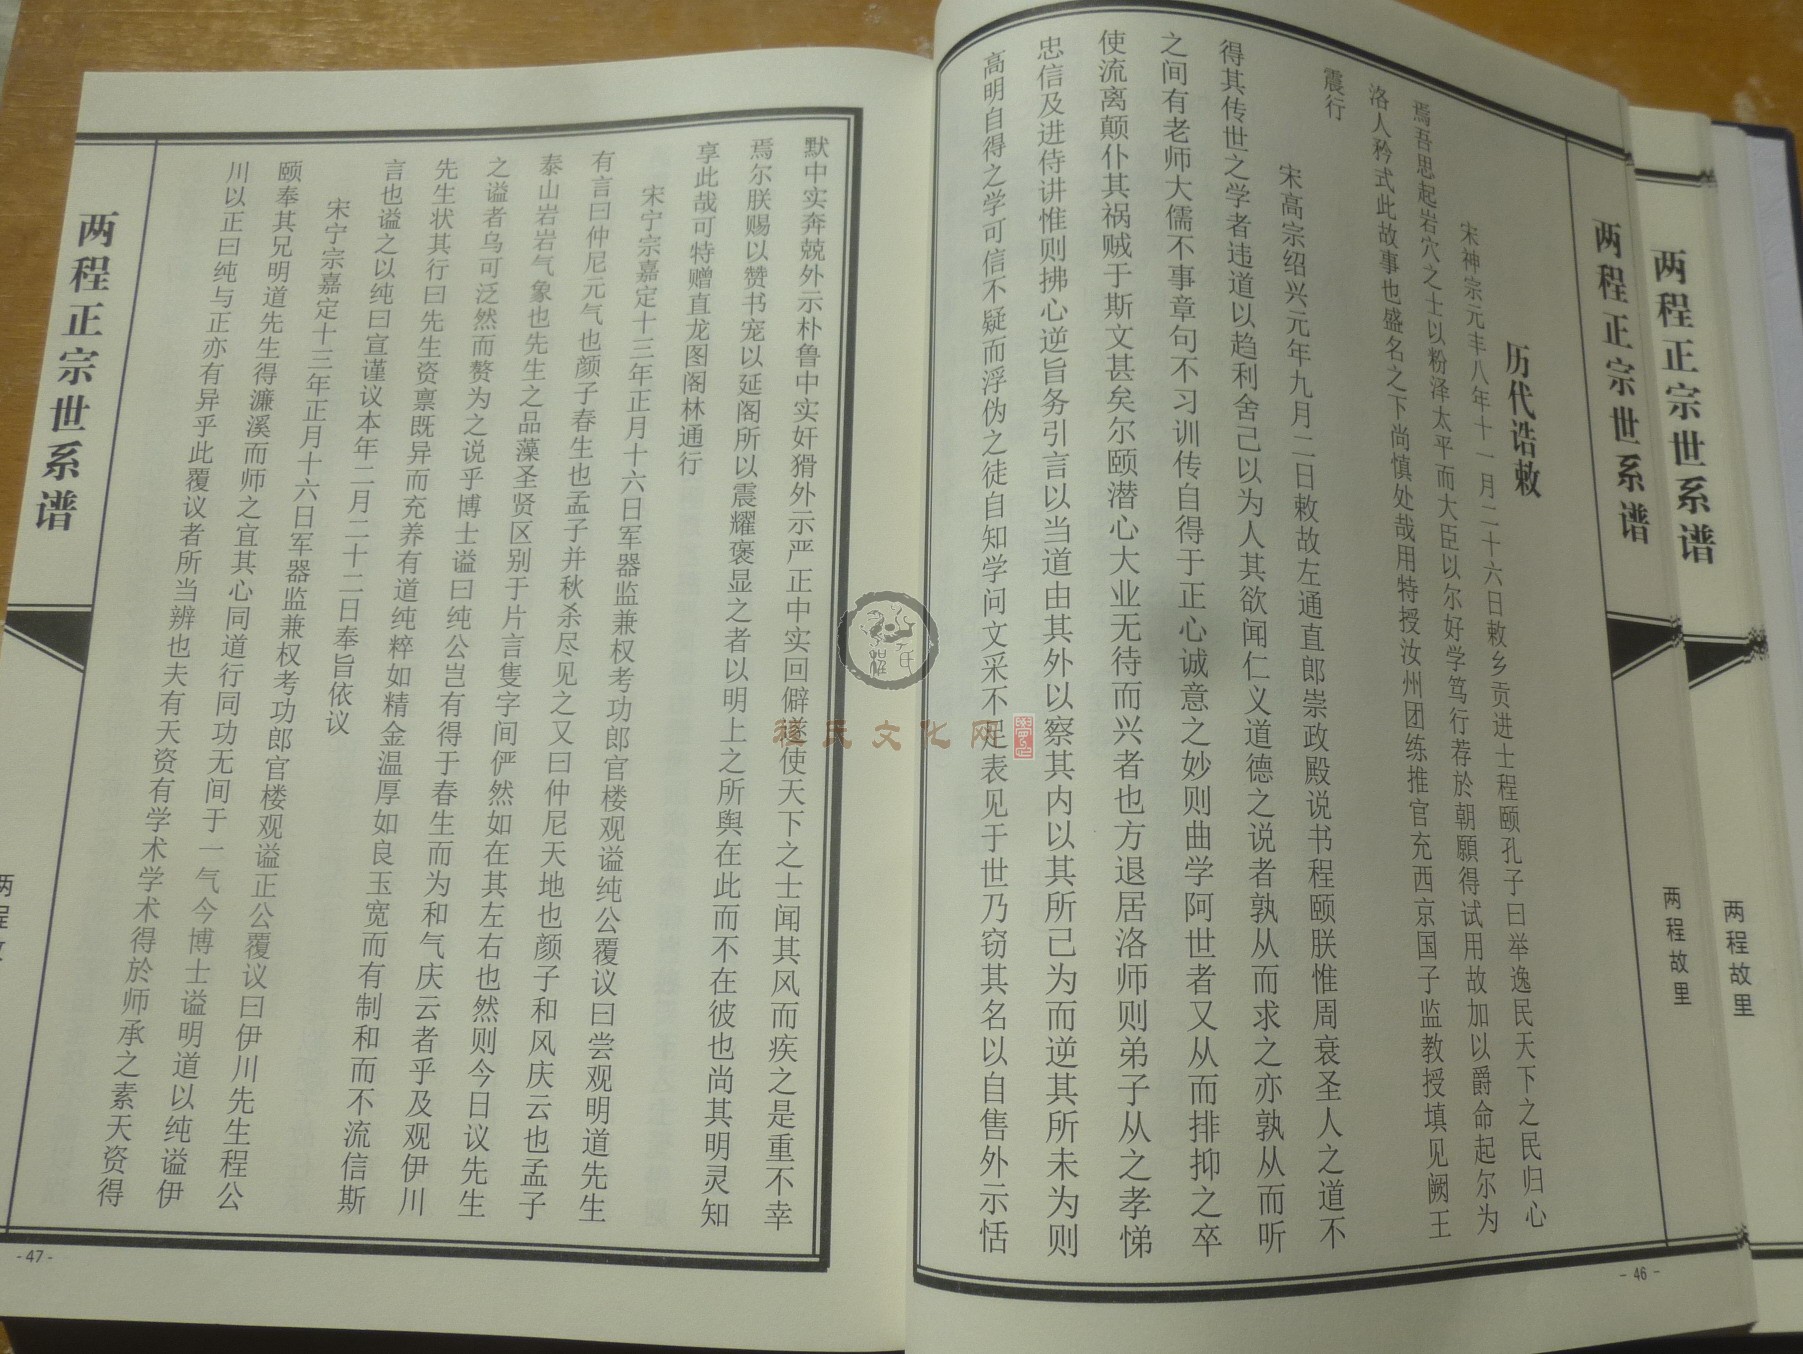 两程正宗世系谱
两程故里
两程正宗世系谱
两程故里
历代诰敕
宋神宗元丰八年十一月二十六日敕乡贡进士程颐孔子曰举逸民天下之民归心
焉吾思起岩穴之士以粉泽太平而大臣以尔好学笃行荐於朝願得试用故加以爵命起尔为
洛人矜式此故事也盛名之下尚慎处哉用特授汝州团练推官充西京国子监教授填见阙王
震行
宋高宗绍兴元年九月二日敕故左通直郎崇政殿说书程颐朕惟周衰圣人之道不
得其传世之学者违道以趋利舍己以为人其欲闻仁义道德之说者孰从而求之亦孰从而听
之间有老师大儒不事章句不习训传自得于正心诚意之妙则曲学阿世者又从而排抑之卒
使流离颠仆其祸贼于斯文甚矣尔颐潜心大业无待而兴者也方退居洛师则弟子从之孝悌
忠信及进侍讲惟则拂心逆旨务引言以当道由其外以察其内以其所已为而逆其所未为则
高明自得之学可信不疑而浮伪之徒自知学问文采不足表见于世乃窃其名以自售外示恬
- 46 -
默中实奔兢外示朴鲁中实奸猾外示严正中实回僻遂使天下之士闻其风而疾之是重不幸
焉尔朕赐以赞书宠以延阁所以震耀褒显之者以明上之所舆在此而不在彼也尚其明灵知
享此哉可特赠直龙图阁林通行
宋宁宗嘉定十三年正月十六日军器监兼权考功郎官楼观谥纯公覆议曰尝观明道先生
有言曰仲尼元气也颜子春生也孟子并秋杀尽见之又曰仲尼天地也颜子和风庆云也孟子
泰山岩岩气象也先生之品藻圣贤区别于片言隻字间俨然如在其左右也然则今日议先生
之谥者乌可泛然而赘为之说乎博士谥曰纯公岂有得于春生而为和气庆云者乎及观伊川
先生状其行曰先生资禀既异而充养有道纯粹如精金温厚如良玉宽而有制和而不流信斯
言也谥之以纯曰宣谨议本年二月二十二日奉旨依议
宋宁宗嘉定十三年正月十六日军器监兼权考功郎官楼观谥正公覆议曰伊川先生程公
颐奉其兄明道先生得濂溪而师之宜其心同道行同功无间于一气今博士谥明道以纯谥伊
川以正曰纯与正亦有异乎此覆议者所当辨也夫有天资有学术学术得於师承之素天资得
两程正宗世系谱
- 47 -
程氏文化网